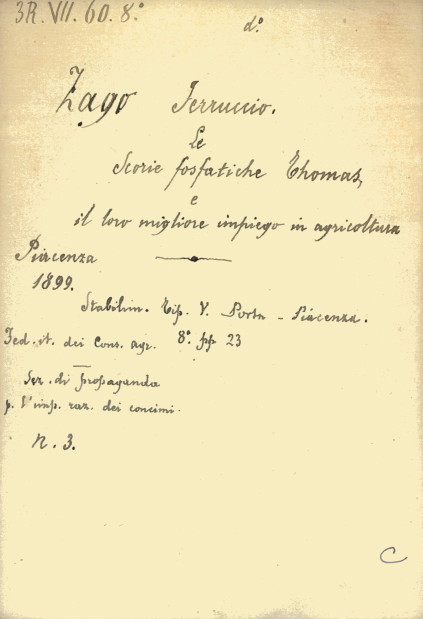 3R. VII. 60. 8°
d°.
Zago Ferruccio.
Le
Scorie fosfatiche Thomas,
e
il loro migliore impiego in agricoltura
Piacenza
1899.
Stabilim. Tip. V. Porta - Piacenza.
Fed. it. dei Cons. agr. 8° pp 23
Sez. di propaganda
p. l'imp. raz. dei concimi.
N. 3.
C